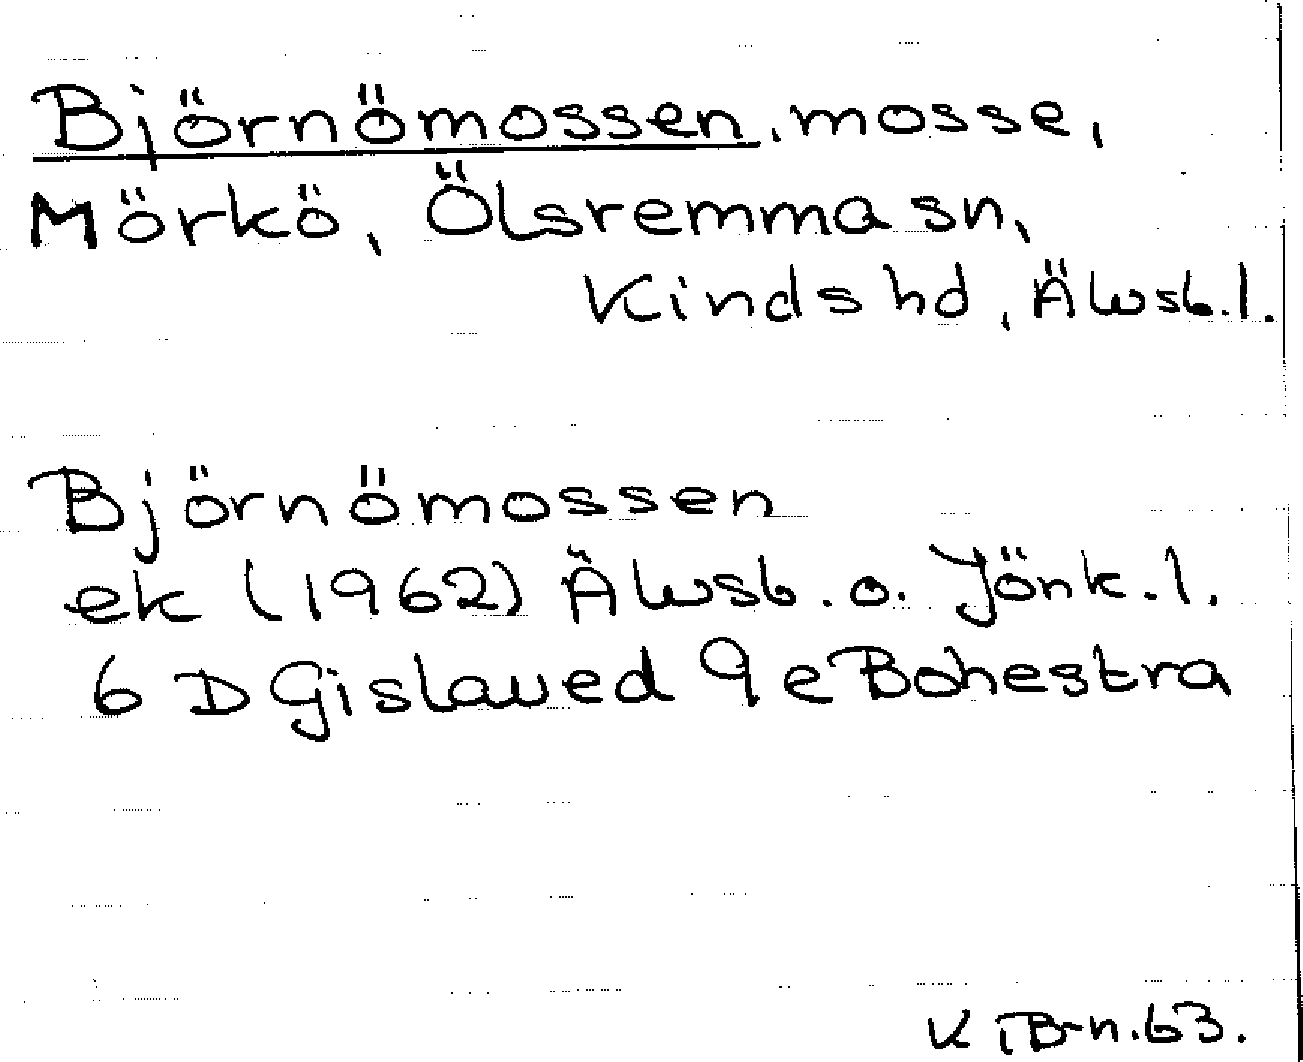 Björnömossen, mosse,
Mörkö, Ölsremma sn,
Kinds hd, Älvsb.l.
Björnömossen
ek (1962) Älvsb. o. Jönk.l.
6 D Gislaved 9 e Bohestra
K B-n.63.